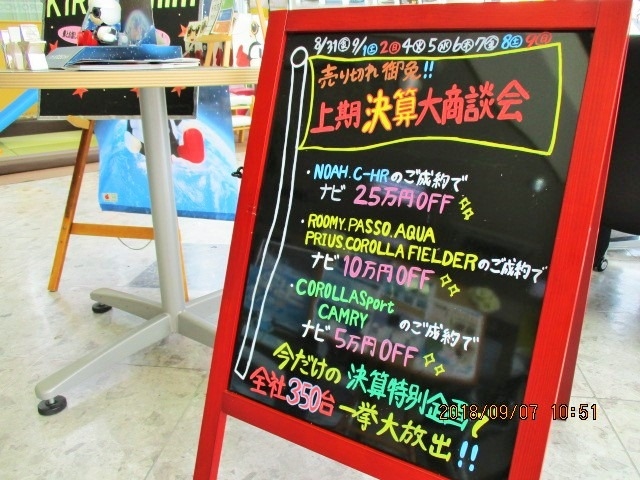 8/31金 9/1土 2日 4火 5水 6木 7金 8土 9日
売り切れ御免!!
上期決算大商談会
・NOAH.C-HRのご成約で
ナビ25万円OFF
・ROOMY.PASSO.AQUA
PRIUS.COROLLA FIELDERのご成約で
ナビ10万円OFF
・COROLLA Sport
CAMRY のご成約で
ナビ5万円OFF
今だけの決算特別企画！
全社350台一挙大放出!!
2018/09/07 10:51